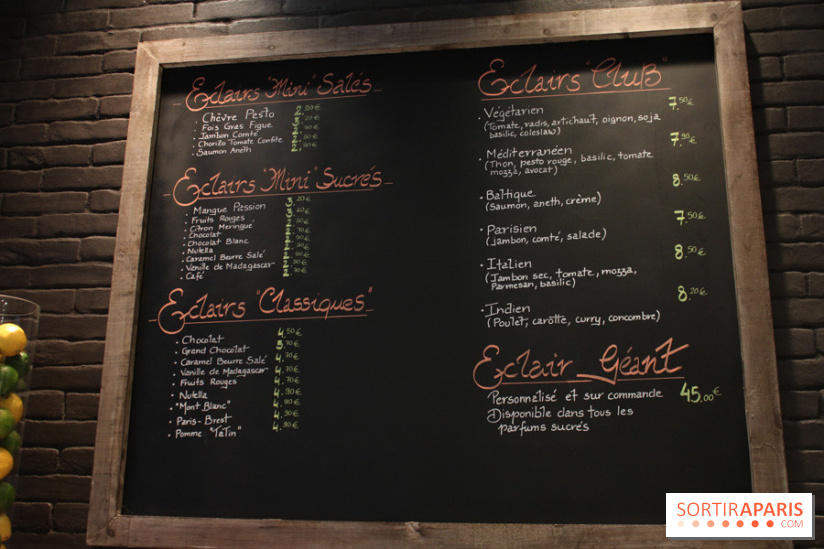 Eclairs "Mini" Salés
• Chèvre Pesto
• Fois Gras Figue
• Jambon Comté
• Chorizo Tomate Confite
• Saumon Aneth
Eclairs "Mini" Sucrés
• Mangue Passion
• Fruits Rouges
• Citron Meringué
• Chocolat
• Chocolat Blanc
• Nutella
• Caramel Beurre Salé
• Vanille de Madagascar
• Café
Eclairs "Classiques"
• Chocolat 4.50€
• Grand Chocolat 5.70€
• Caramel Beurre Salé 4.70€
• Vanille de Madagascar 4.70€
• Fruits Rouges 4.70€
• Nutella 4.90€
• "Mont Blanc" 4.90€
• Paris-Brest 4.90€
• Pomme "Tatin" 4.90€
Eclairs "Club"
• Végétarien 7.50€
(Tomate, radis, artichaut, oignon, soja
basilic, coleslaw)
• Méditerranéen 7.90€
(Thon, pesto rouge, basilic, tomate
mozza, avocat)
• Baltique 8.50€
(Saumon, aneth, crème)
• Parisien 7.50€
(Jambon, comté, salade)
• Italien 8.50€
(Jambon sec, tomate, mozza,
Parmesan, basilic)
• Indien 8.20€
(Poulet, carotte, curry, concombre)
Eclair Géant
Personnalisé et sur commande 45,00€
Disponible dans tous les
parfums sucrés
SORTIRAPARIS
.COM